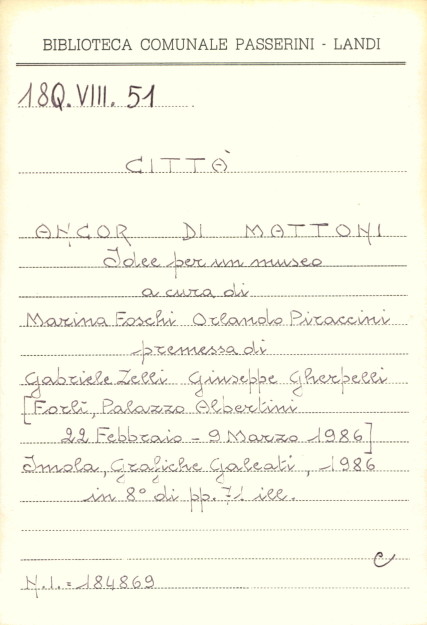 BIBLIOTECA COMUNALE PASSERINI - LANDI
18Q. VIII. 51
CITTÀ
ANCOR DI MATTONI
Idee per un museo
a cura di
Marina Foschi Orlando Piraccini
premessa di
Gabriele Zelli Giuseppe Gherpelli
[Forlì, Palazzo Albertini
22 Febbraio - 9 Marzo 1986]
Imola, Grafiche Galeati, 1986
in 8° di pp. 71 ill.
C
N.I. = 184869